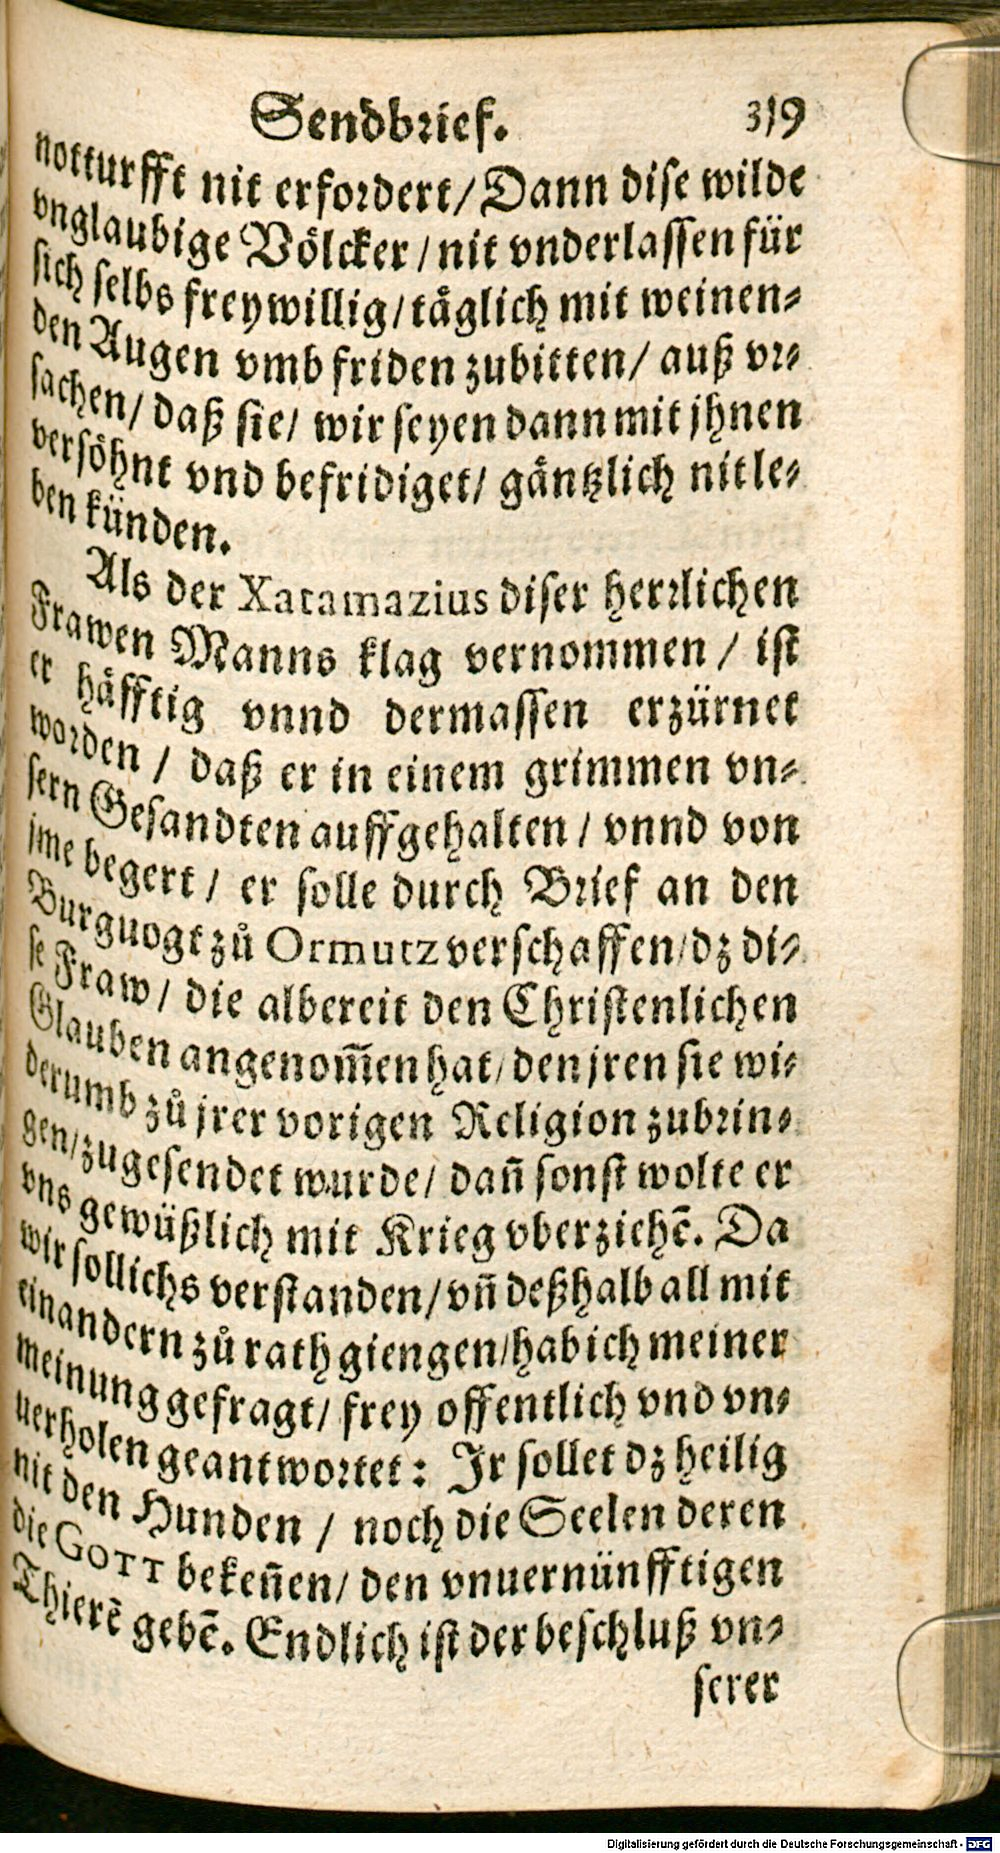 Sendbrief. 319
notturfft nit erfordert/ Dann dise wilde
vnglaubige Völcker/ nit vnderlassen für
sich selbs freywillig/ täglich mit weinen-
den Augen vmb friden zubitten/ auß vr-
sachen/ daß sie/ wir seyen dann mit jhnen
versöhnt vnd befridiget/ gäntzlich nit le-
ben künden.
Als der Xatamazius diser herrlichen
Frawen Manns klag vernommen/ ist
er häfftig vnnd dermassen erzürnet
worden/ daß er in einem grimmen vn-
sern Gesandten auffgehalten/ vnnd von
jme begert/ er solle durch Brief an den
Burguogt zů Ormutz verschaffen/ dz di-
se Fraw/ die albereit den Christenlichen
Glauben angenom̃en hat/ den jren sie wi-
derumb zů jrer vorigen Religion zubrin-
gen/ zugesendet wurde/ dañ sonst wolte er
vns gewüßlich mit Krieg vberziehẽ. Da
wir sollichs verstanden/ vñ deßhalb all mit
einandern zů rath giengen/ hab ich meiner
meinung gefragt/ frey offentlich vnd vn-
uerholen geantwortet: Jr sollet dz heilig
nit den Hunden/ noch die Seelen deren
die GOTT bekeñen/ den vnuernünfftigen
Thierẽ gebẽ. Endlich ist der beschluß vn-
serer
Digitalisierung gefördert durch die Deutsche Forschungsgemeinschaft - DFG